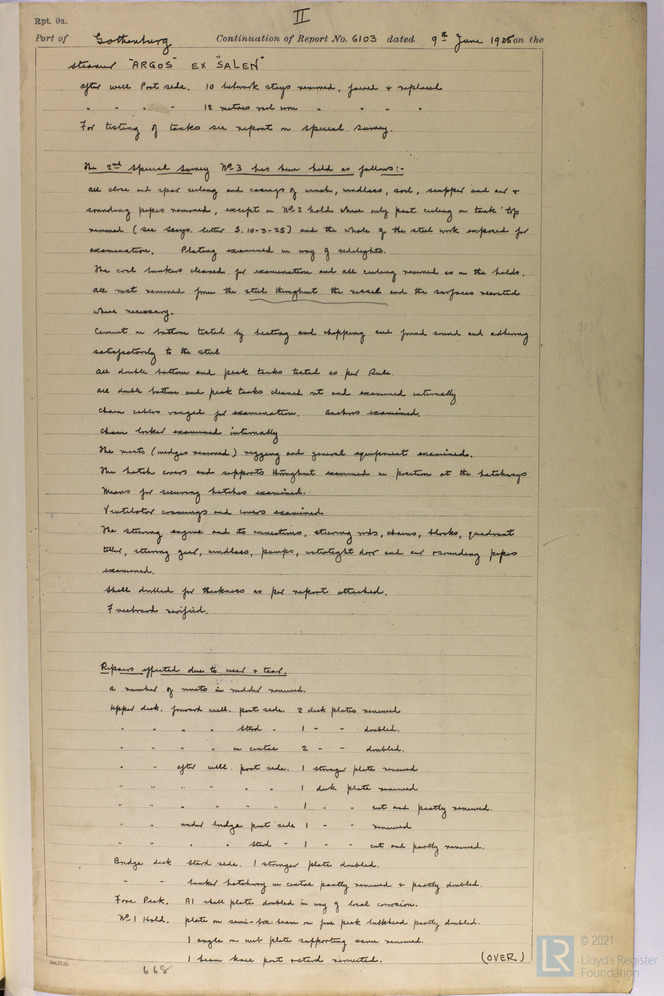 Rpt. 9a.
II
Port of Gothenburg Continuation of Report No. 6103 dated 9th June 1925 on the
steamer "ARGOS" EX "SALEN"
after well Port side. 10 bulwark stays removed, faired & replaced
" " " " 12 metres rail iron " " " "
For testing of tanks see report on special survey.
The 2nd Special Survey No 3 has been held as follows:-
All close and spar ceiling and casings of winch, windlass, soil, scupper and air &
sounding pipes removed, except in No 2 hold where only part ceiling on tank top
removed (see Secys. letter S. 10-3-25) and the whole of the steel work exposed for
examination. Plating examined in way of sidelights.
The coal bunkers cleared for examination and all ceiling removed as in the holds.
All rust removed from the steel throughout the vessel and the surfaces recoated
where necessary.
Cement on bottom tested by beating and chipping and found sound and adhering
satisfactorily to the steel
All double bottom and peak tanks tested as per Rule.
All double bottom and peak tanks cleaned out and examined internally
Chain cables ranged for examination. Anchors examined.
Chain locker examined internally
The masts (wedges removed) rigging and general equipment examined.
The hatch covers and supports throughout examined in position at the hatchways
Means for securing hatches examined.
Ventilator coamings and covers examined
The steering engine and its connections, steering rods, chains, blocks, quadrant
tiller, steering gear, windlass, pumps, watertight door and air & sounding pipes
examined.
Shell drilled for thickness as per report attached.
Freeboard verified.
Repairs effected due to wear & tear.
A number of rivets in rudder renewed.
Upper deck. forward well. port side. 2 deck plates renewed
" " " " Stbd " 1 - - doubled.
" " " " in centre 2 - - doubled.
" " after well. port side. 1 stringer plate renewed
" " " " " 1 deck plate renewed
" " " " " 1 " " cut and partly renewed.
" " under bridge port side 1 - - renewed
" " " " Stbd - 1 - - cut and partly renewed.
Bridge deck Stbd side. 1 stringer plate doubled.
" " bunker hatchway in centre partly renewed & partly doubled.
Fore Peak. A1 shell plate doubled in way of local corrosion.
No 1 Hold. plate on semi-box beam on fore peak bulkhead partly doubled.
1 angle on web plate supporting same renewed.
1 beam knee port & stbd rerivetted.
(OVER)
668
© 2021
Lloyd's Register
Foundation
LR